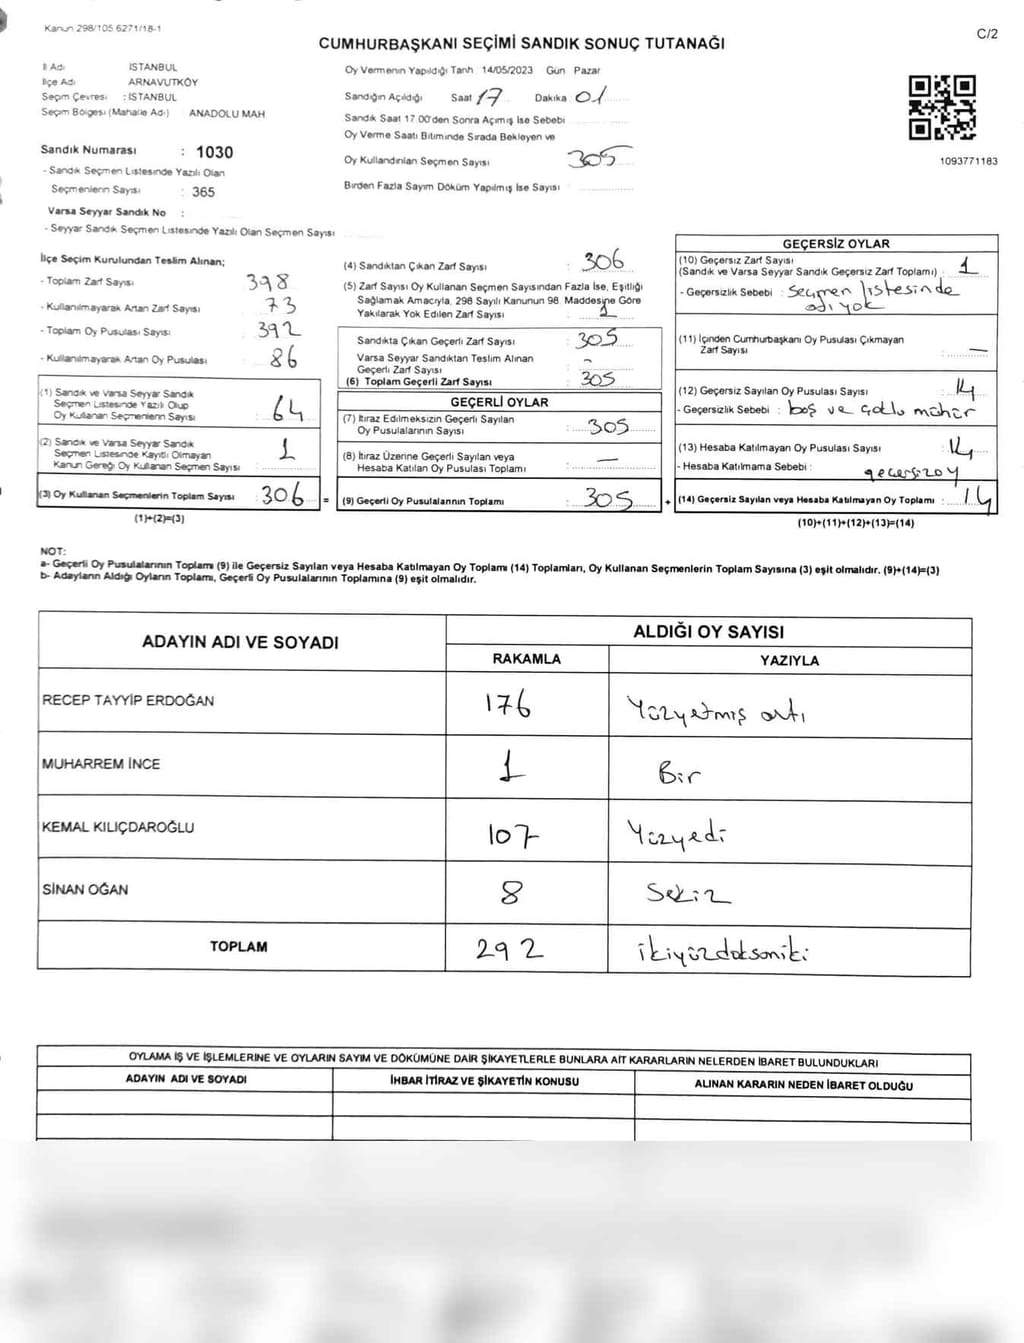 Kanun 298/105 6271/18-1
C/2
CUMHURBAŞKANI SEÇİMİ SANDIK SONUÇ TUTANAĞI
İl Adı : İSTANBUL
İlçe Adı : ARNAVUTKÖY
Seçim Çevresi : İSTANBUL
Seçim Bölgesi (Mahalle Adı) ANADOLU MAH
Sandık Numarası : 1030
- Sandık Seçmen Listesinde Yazılı Olan
Seçmenlerin Sayısı : 365
Varsa Seyyar Sandık No :
- Seyyar Sandık Seçmen Listesinde Yazılı Olan Seçmen Sayısı
Oy Vermenin Yapıldığı Tarih : 14/05/2023 Gün Pazar
Sandığın Açıldığı Saat 17 Dakika : 01
Sandık Saat 17.00'den Sonra Açımış İse Sebebi
Oy Verme Saati Bitiminde Sırada Bekleyen ve
Oy Kullandırılan Seçmen Sayısı 305
Birden Fazla Sayım Döküm Yapılmış İse Sayısı :
1093771183
İlçe Seçim Kurulundan Teslim Alınan;
- Toplam Zarf Sayısı : 398
- Kullanılmayarak Artan Zarf Sayısı : 73
- Toplam Oy Pusulası Sayısı : 392
- Kullanılmayarak Artan Oy Pusulası : 86
(1) Sandık ve Varsa Seyyar Sandık
Seçmen Listesinde Yazılı Olup
Oy Kullanan Seçmenlerin Sayısı : 64
(2) Sandık ve Varsa Seyyar Sandık
Seçmen Listesinde Kayıtlı Olmayan
Kanun Gereği Oy Kullanan Seçmen Sayısı : 1
(3) Oy Kullanan Seçmenlerin Toplam Sayısı : 306 =
(1)+(2)=(3)
(4) Sandıktan Çıkan Zarf Sayısı : 306
(5) Zarf Sayısı Oy Kullanan Seçmen Sayısından Fazla İse, Eşitliği
Sağlamak Amacıyla, 298 Sayılı Kanunun 98. Maddesine Göre
Yakılarak Yok Edilen Zarf Sayısı : 1
Sandıkta Çıkan Geçerli Zarf Sayısı : 305
Varsa Seyyar Sandıktan Teslim Alınan
Geçerli Zarf Sayısı : -
(6) Toplam Geçerli Zarf Sayısı : 305
GEÇERLİ OYLAR
(7) İtiraz Edilmeksizin Geçerli Sayılan
Oy Pusulalarının Sayısı : 305
(8) İtiraz Üzerine Geçerli Sayılan veya
Hesaba Katılan Oy Pusulası Toplamı : —
(9) Geçerli Oy Pusulalarının Toplamı : 305 +
GEÇERSİZ OYLAR
(10) Geçersiz Zarf Sayısı
(Sandık ve Varsa Seyyar Sandık Geçersiz Zarf Toplamı) : 1
- Geçersizlik Sebebi : Seçmen listesinde
adı yok
(11) İçinden Cumhurbaşkanı Oy Pusulası Çıkmayan
Zarf Sayısı : —
(12) Geçersiz Sayılan Oy Pusulası Sayısı : 14
- Geçersizlik Sebebi : boş ve çoklu mühür
(13) Hesaba Katılmayan Oy Pusulası Sayısı : 14
- Hesaba Katılmama Sebebi : geçersiz oy
(14) Geçersiz Sayılan veya Hesaba Katılmayan Oy Toplamı : 14
(10)+(11)+(12)+(13)=(14)
NOT:
a- Geçerli Oy Pusulalarının Toplam (9) ile Geçersiz Sayılan veya Hesaba Katılmayan Oy Toplam (14) Toplamları, Oy Kullanan Seçmenlerin Toplam Sayısına (3) eşit olmalıdır. (9)+(14)=(3)
b- Adayların Aldığı Oyların Toplamı, Geçerli Oy Pusulalarının Toplamına (9) eşit olmalıdır.
ADAYIN ADI VE SOYADI
ALDIĞI OY SAYISI
RAKAMLA YAZIYLA
RECEP TAYYİP ERDOĞAN 176 Yüzyetmiş altı
MUHARREM İNCE 1 Bir
KEMAL KILIÇDAROĞLU 107 Yüzyedi
SİNAN OĞAN 8 Sekiz
TOPLAM 292 ikiyüzdoksaniki
OYLAMA İŞ VE İŞLEMLERİNE VE OYLARIN SAYIM VE DÖKÜMÜNE DAİR ŞİKAYETLERLE BUNLARA AİT KARARLARIN NELERDEN İBARET BULUNDUKLARI
ADAYIN ADI VE SOYADI İHBAR İTİRAZ VE ŞİKAYETİN KONUSU ALINAN KARARIN NEDEN İBARET OLDUĞU